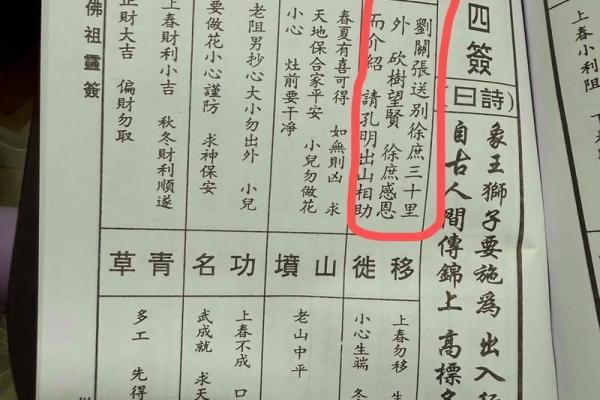 上春小利阻
四簽
詩曰
象王獅子要施為 出入
自古人間傳錦上 高標
劉關張送別徐庶三十里
外 砍樹望賢 徐庶感恩
而介紹 請孔明出山相助
春夏有喜可得 如無則凶 求
天地保合家平安 小兒勿做花
小心 灶前要干凈
老阻男抄心大小勿出外 小兒
要做花小心謹防 求神保安
上春財利小吉 秋冬財利順遂
正財大吉 偏財勿取
移徙
上春勿移 生
小心生端 冬
山墳
老山中平
功名
上春不成 口
武成就 求天
青草
多工 先得
佛祖靈簽